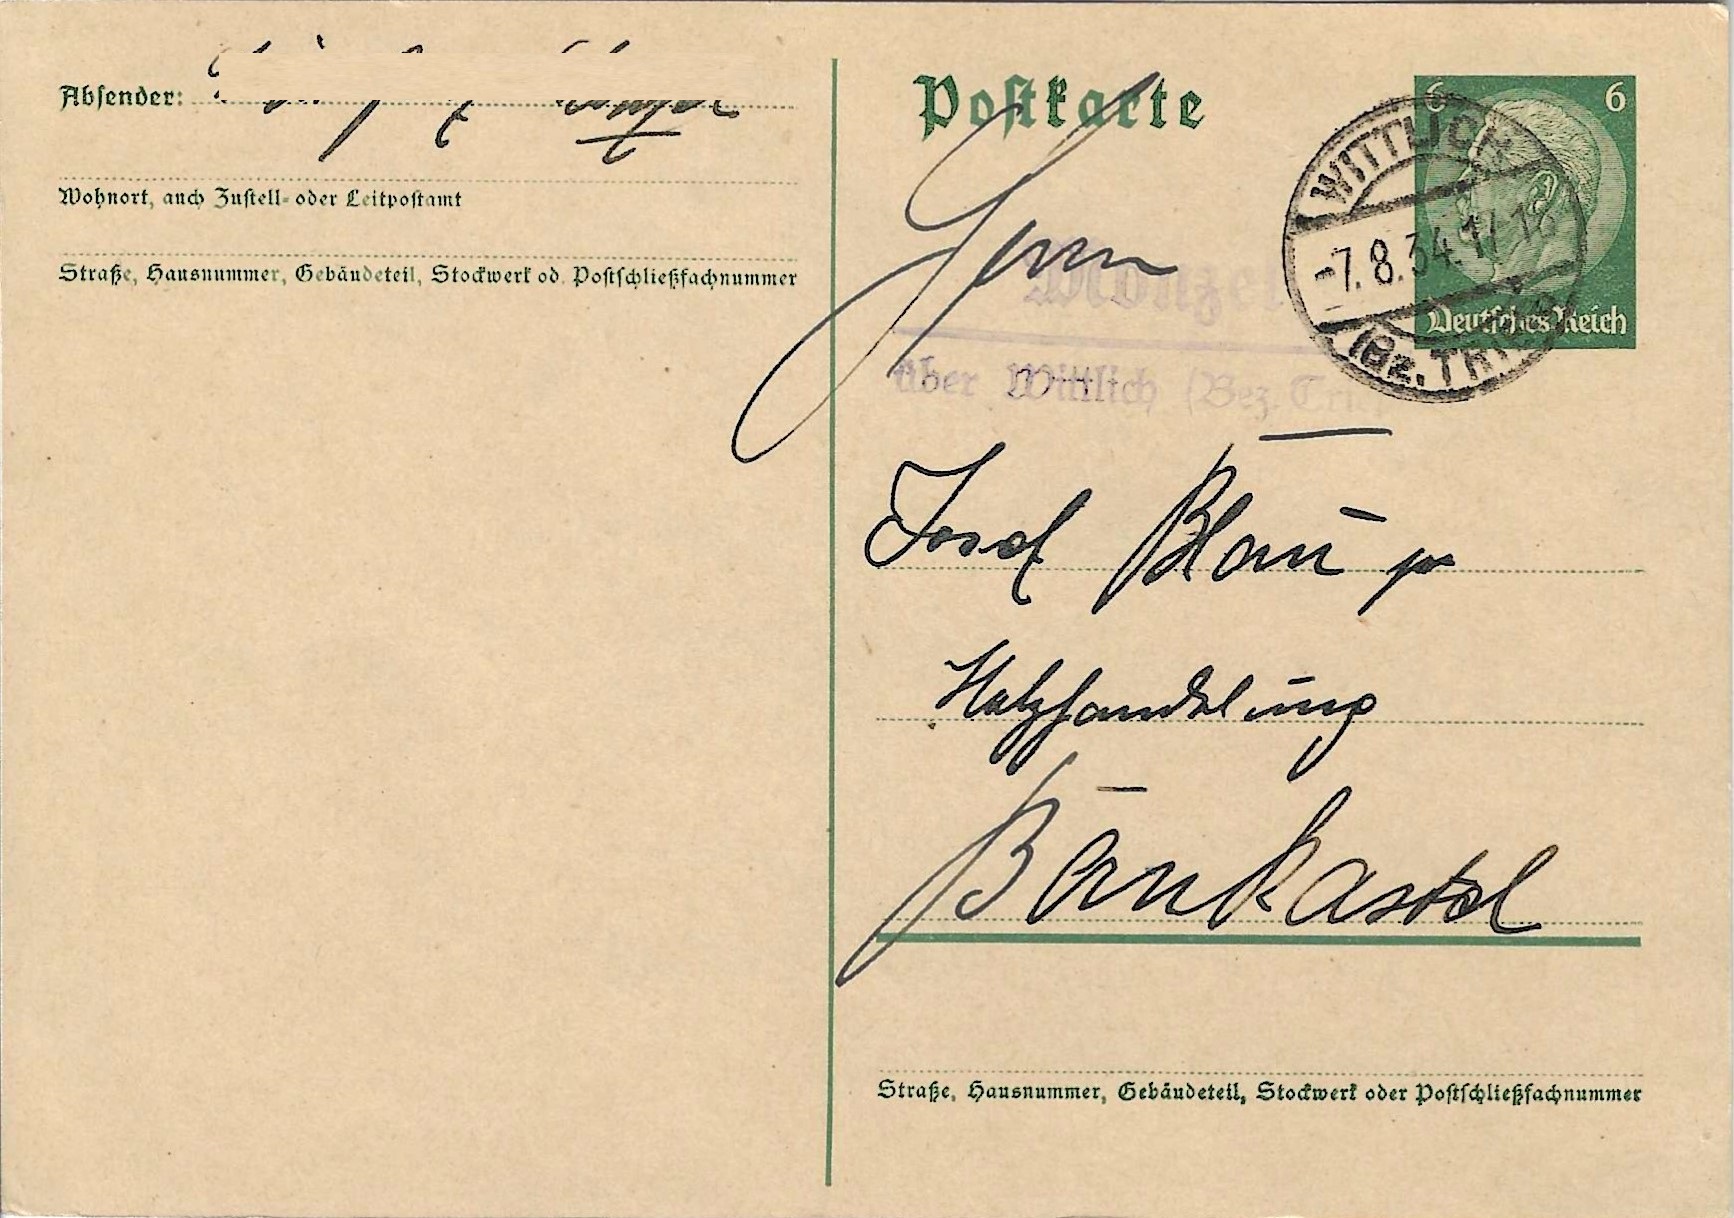 Absender:
Wohnort, auch Zustell- oder Leitpostamt
Straße, Hausnummer, Gebäudeteil, Stockwerk od. Postschließfachnummer
Postkarte
6 6
Deutsches Reich
WITTLICH
-7.8.34.17-18
(Bz. TRIER)
Monzel
über Wittlich (Bez. Trier
Herrn
Josef Blau jr
Holzhandlung
Bernkastel
Straße, Hausnummer, Gebäudeteil, Stockwerk oder Postschließfachnummer